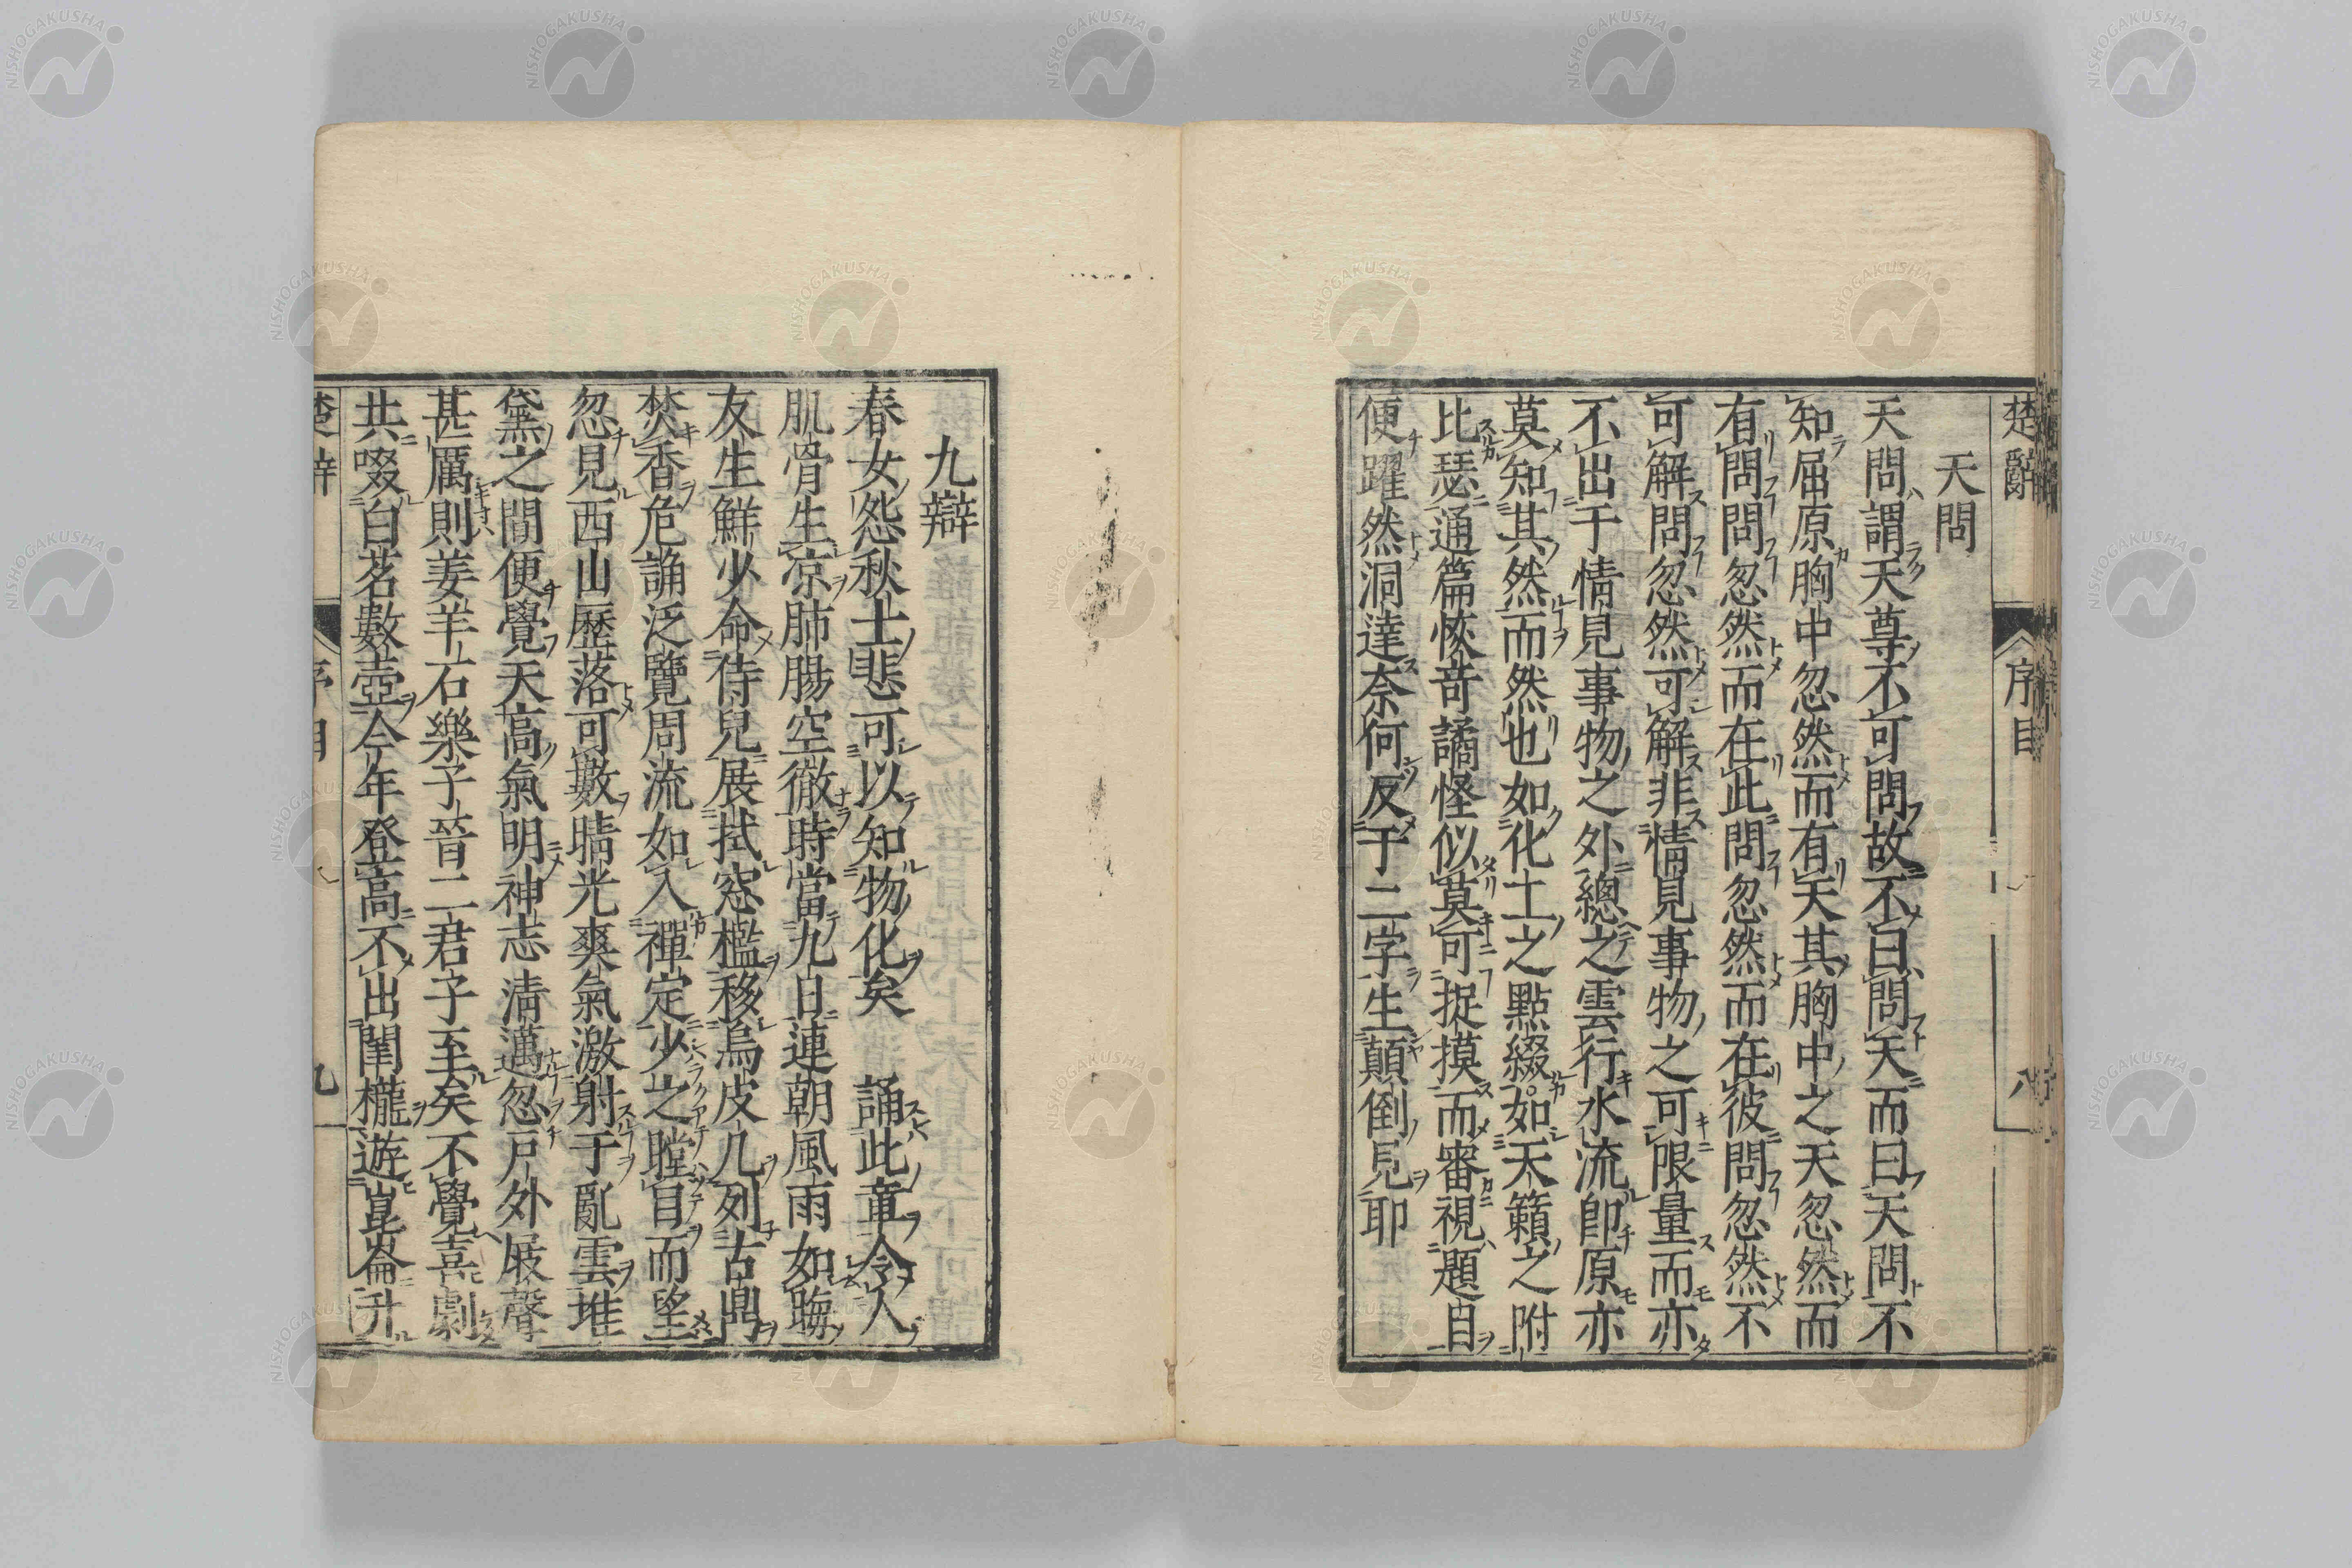 楚辭
序目
八
天問
天問謂天尊不可問故不曰問天而曰天問不
知屈原胸中忽然而有天其胸中之天忽然而
有問問忽然而在此問忽然而在彼問忽然不
可解問忽然可解非情見事物之可限量而亦
不出于情見事物之外總之雲行水流卽原亦
莫知其然而然也如化工之點綴如天籟之附
比瑟通篇恢奇譎怪似莫可捉摸而審視題自
便躍然洞達奈何反于二字生顛倒見耶
九辯
春女怨秋士悲可以知物化矣 誦此章令人
肌骨生凉肺腸空徹時當九日連朝風雨如晦
友生鮮少命侍兒展拭窓檻移烏皮几列古鼎
焚香危誦泛覽周流如入禪定少之瞠目而望
忽見西山歷落可數晴光爽氣激射于亂雲堆
黛之間便覺天高氣明神志淸邁忽戶外屐聲
甚厲則姜羊石樂子晉二君子至矣不覺喜劇
共啜白茗數壺今年登高不出闈櫳遊崑崙升
楚辭
序目
九
NISHOGAKUSHA